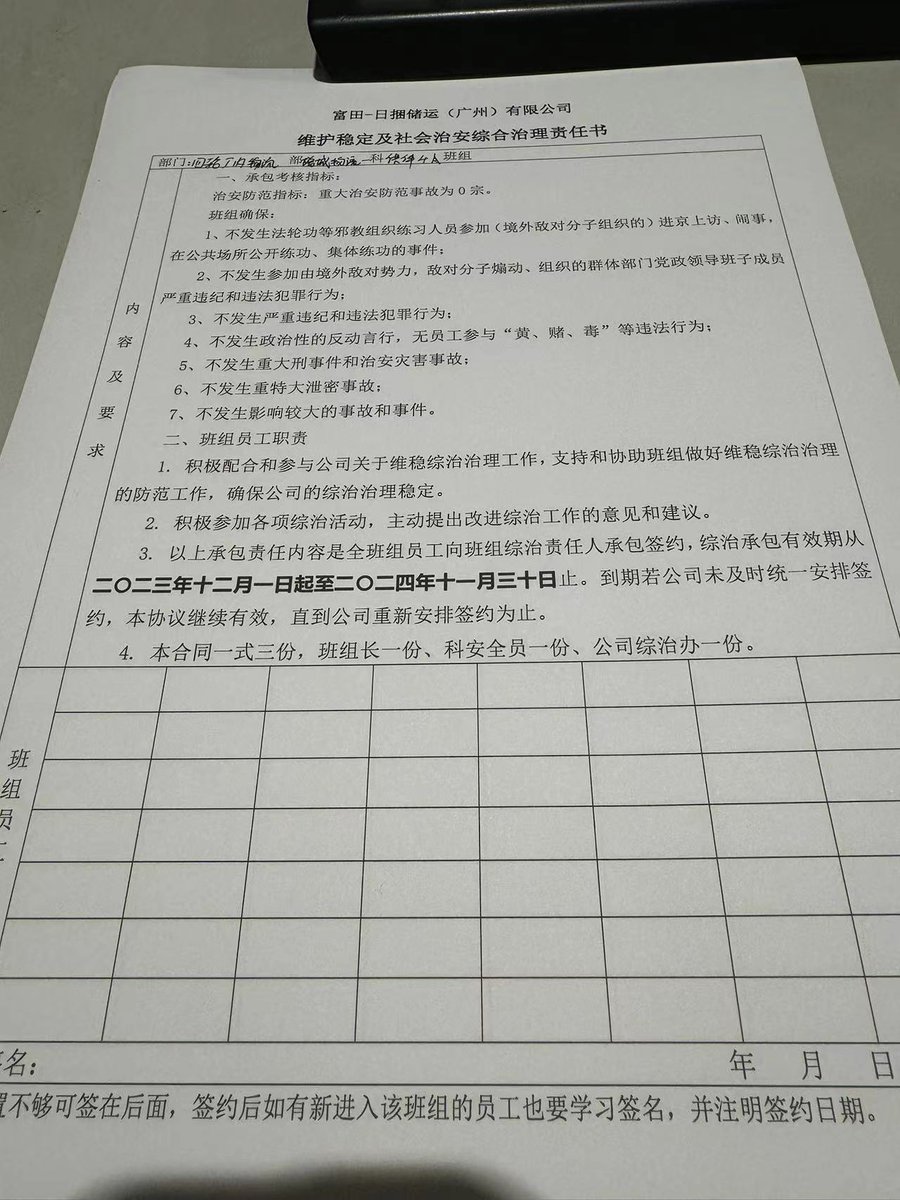 富田-日捆储运（广州）有限公司
维护稳定及社会治安综合治理责任书
部门: 部 科 班组
一、承包考核指标：
治安防范指标：重大治安防范事故为 0 宗。
班组确保：
1、不发生法轮功等邪教组织练习人员参加（境外敌对分子组织的）进京上访、闹事，
在公共场所公开练功、集体练功的事件；
2、不发生参加由境外敌对势力，敌对分子煽动、组织的群体部门党政领导班子成员
严重违纪和违法犯罪行为；
3、不发生严重违纪和违法犯罪行为；
4、不发生政治性的反动言行，无员工参与“黄、赌、毒”等违法行为；
5、不发生重大刑事件和治安灾害事故；
6、不发生重特大泄密事故；
7、不发生影响较大的事故和事件。
内容及要求
二、班组员工职责
1. 积极配合和参与公司关于维稳综治治理工作，支持和协助班组做好维稳综治治理
的防范工作，确保公司的综治治理稳定。
2. 积极参加各项综治活动，主动提出改进综治工作的意见和建议。
3. 以上承包责任内容是全班组员工向班组综治责任人承包签约，综治承包有效期从
二〇二三年十二月一日起至二〇二四年十一月三十日止。到期若公司未及时统一安排签
约，本协议继续有效，直到公司重新安排签约为止。
4. 本合同一式三份，班组长一份、科安全员一份、公司综治办一份。
班组员
名：
年 月 日
置不够可签在后面，签约后如有新进入该班组的员工也要学习签名，并注明签约日期。